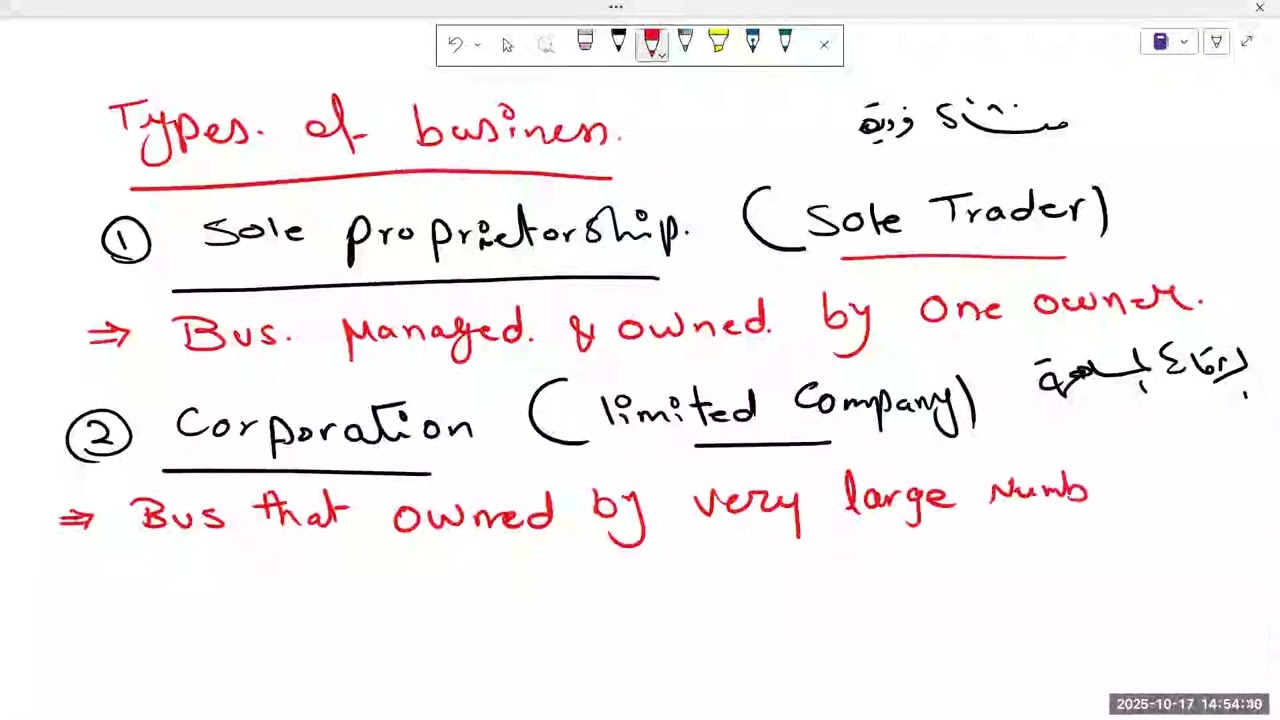 Types. of business.
منشأة فردية
① Sole Proprietorship. (Sole Trader)
⇒ Bus. Managed. & owned. by One owner.
② Corporation (limited Company)
⇒ Bus that owned by very large Numb
2025-10-17 14:54:40